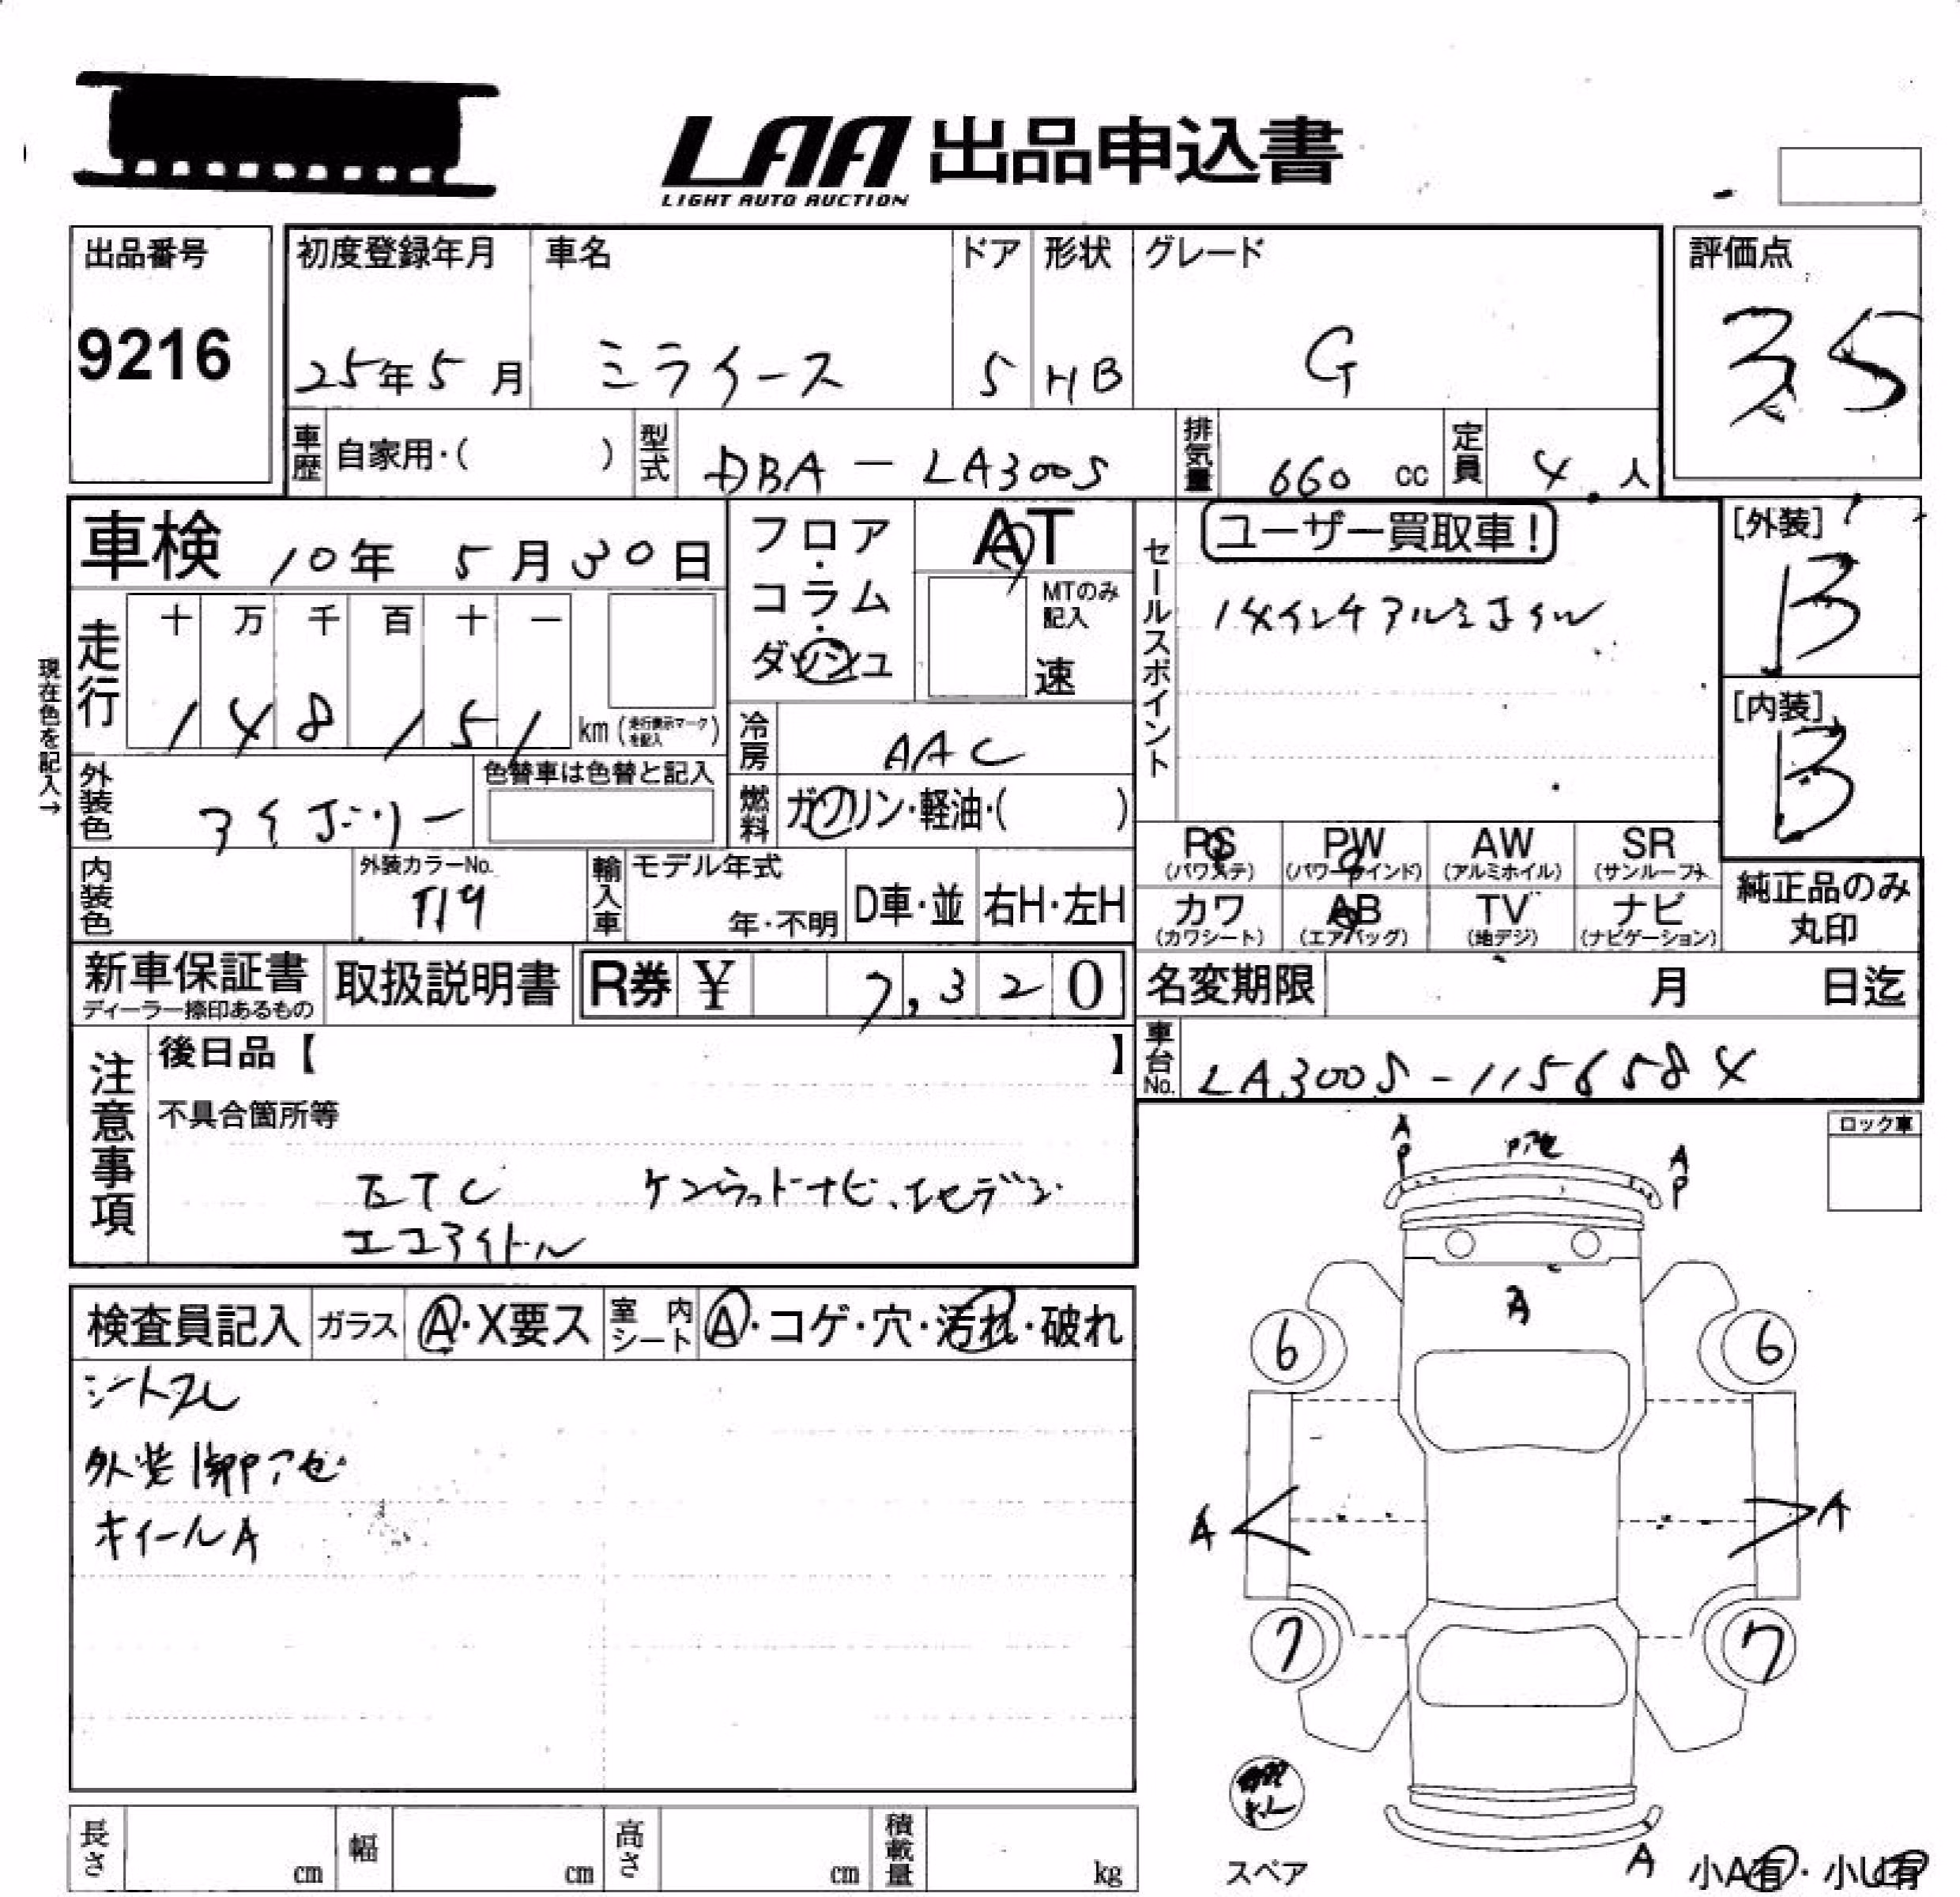 LAA 出品申込書
LIGHT AUTO AUCTION
出品番号
9216
初度登録年月 車名 ドア 形状 グレード
25年5月 ミライース 5 HB G
評価点
3.5
車歴 自家用・( ) 型式 DBA - LA300S 排気量 660 cc 定員 4人
車検 10年 5月30日
フロア・コラム・ダッシュ
AT
MTのみ記入
速
セールスポイント
ユーザー買取車!
14インチアルミホイル
[外装]
B
[内装]
B
現在色を記入→
走行 十 万 千 百 十 一
148151 km (走行表示マークを記入)
冷房 AAC
外装色 アイボリー
色替車は色替と記入
燃料 ガソリン・軽油・( )
PS (パワステ) PW (パワーウインド) AW (アルミホイル) SR (サンルーフ)
カワ (カワシート) AB (エアバッグ) TV (地デジ) ナビ (ナビゲーション)
純正品のみ丸印
内装色 外装カラーNo. T19 輸入車 モデル年式 年・不明 D車・並 右H・左H
新車保証書 ディーラー捺印あるもの 取扱説明書 R券 ¥ 7,320
名変期限 月 日迄
車台No. LA300S-1156584
注意事項
後日品【 】
不具合箇所等
ETC ケンウッドナビ、1セデジ
エコアイドル
ロック車
A P A P
検査員記入 ガラス A・X要ス 室内シート A・コゲ・穴・汚れ・破れ
シートスレ
外装
ホイールA
A
6 6
A A
7 7
スペア
A
小A有・小U有
長さ cm 幅 cm 高さ cm 積載量 kg